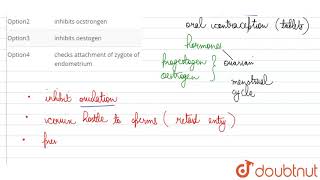 Option2 inhibits ocstrongen
Option3 inhibits oestogen
Option4 checks attachment of zygote of
endometrium
oral contraception (tablets)
hormones
progestogen
oestrogen
ovarian
menstrual
cycle
• inhibit ovulation
• hostile to sperms ( retard entry )
•
doubtnut